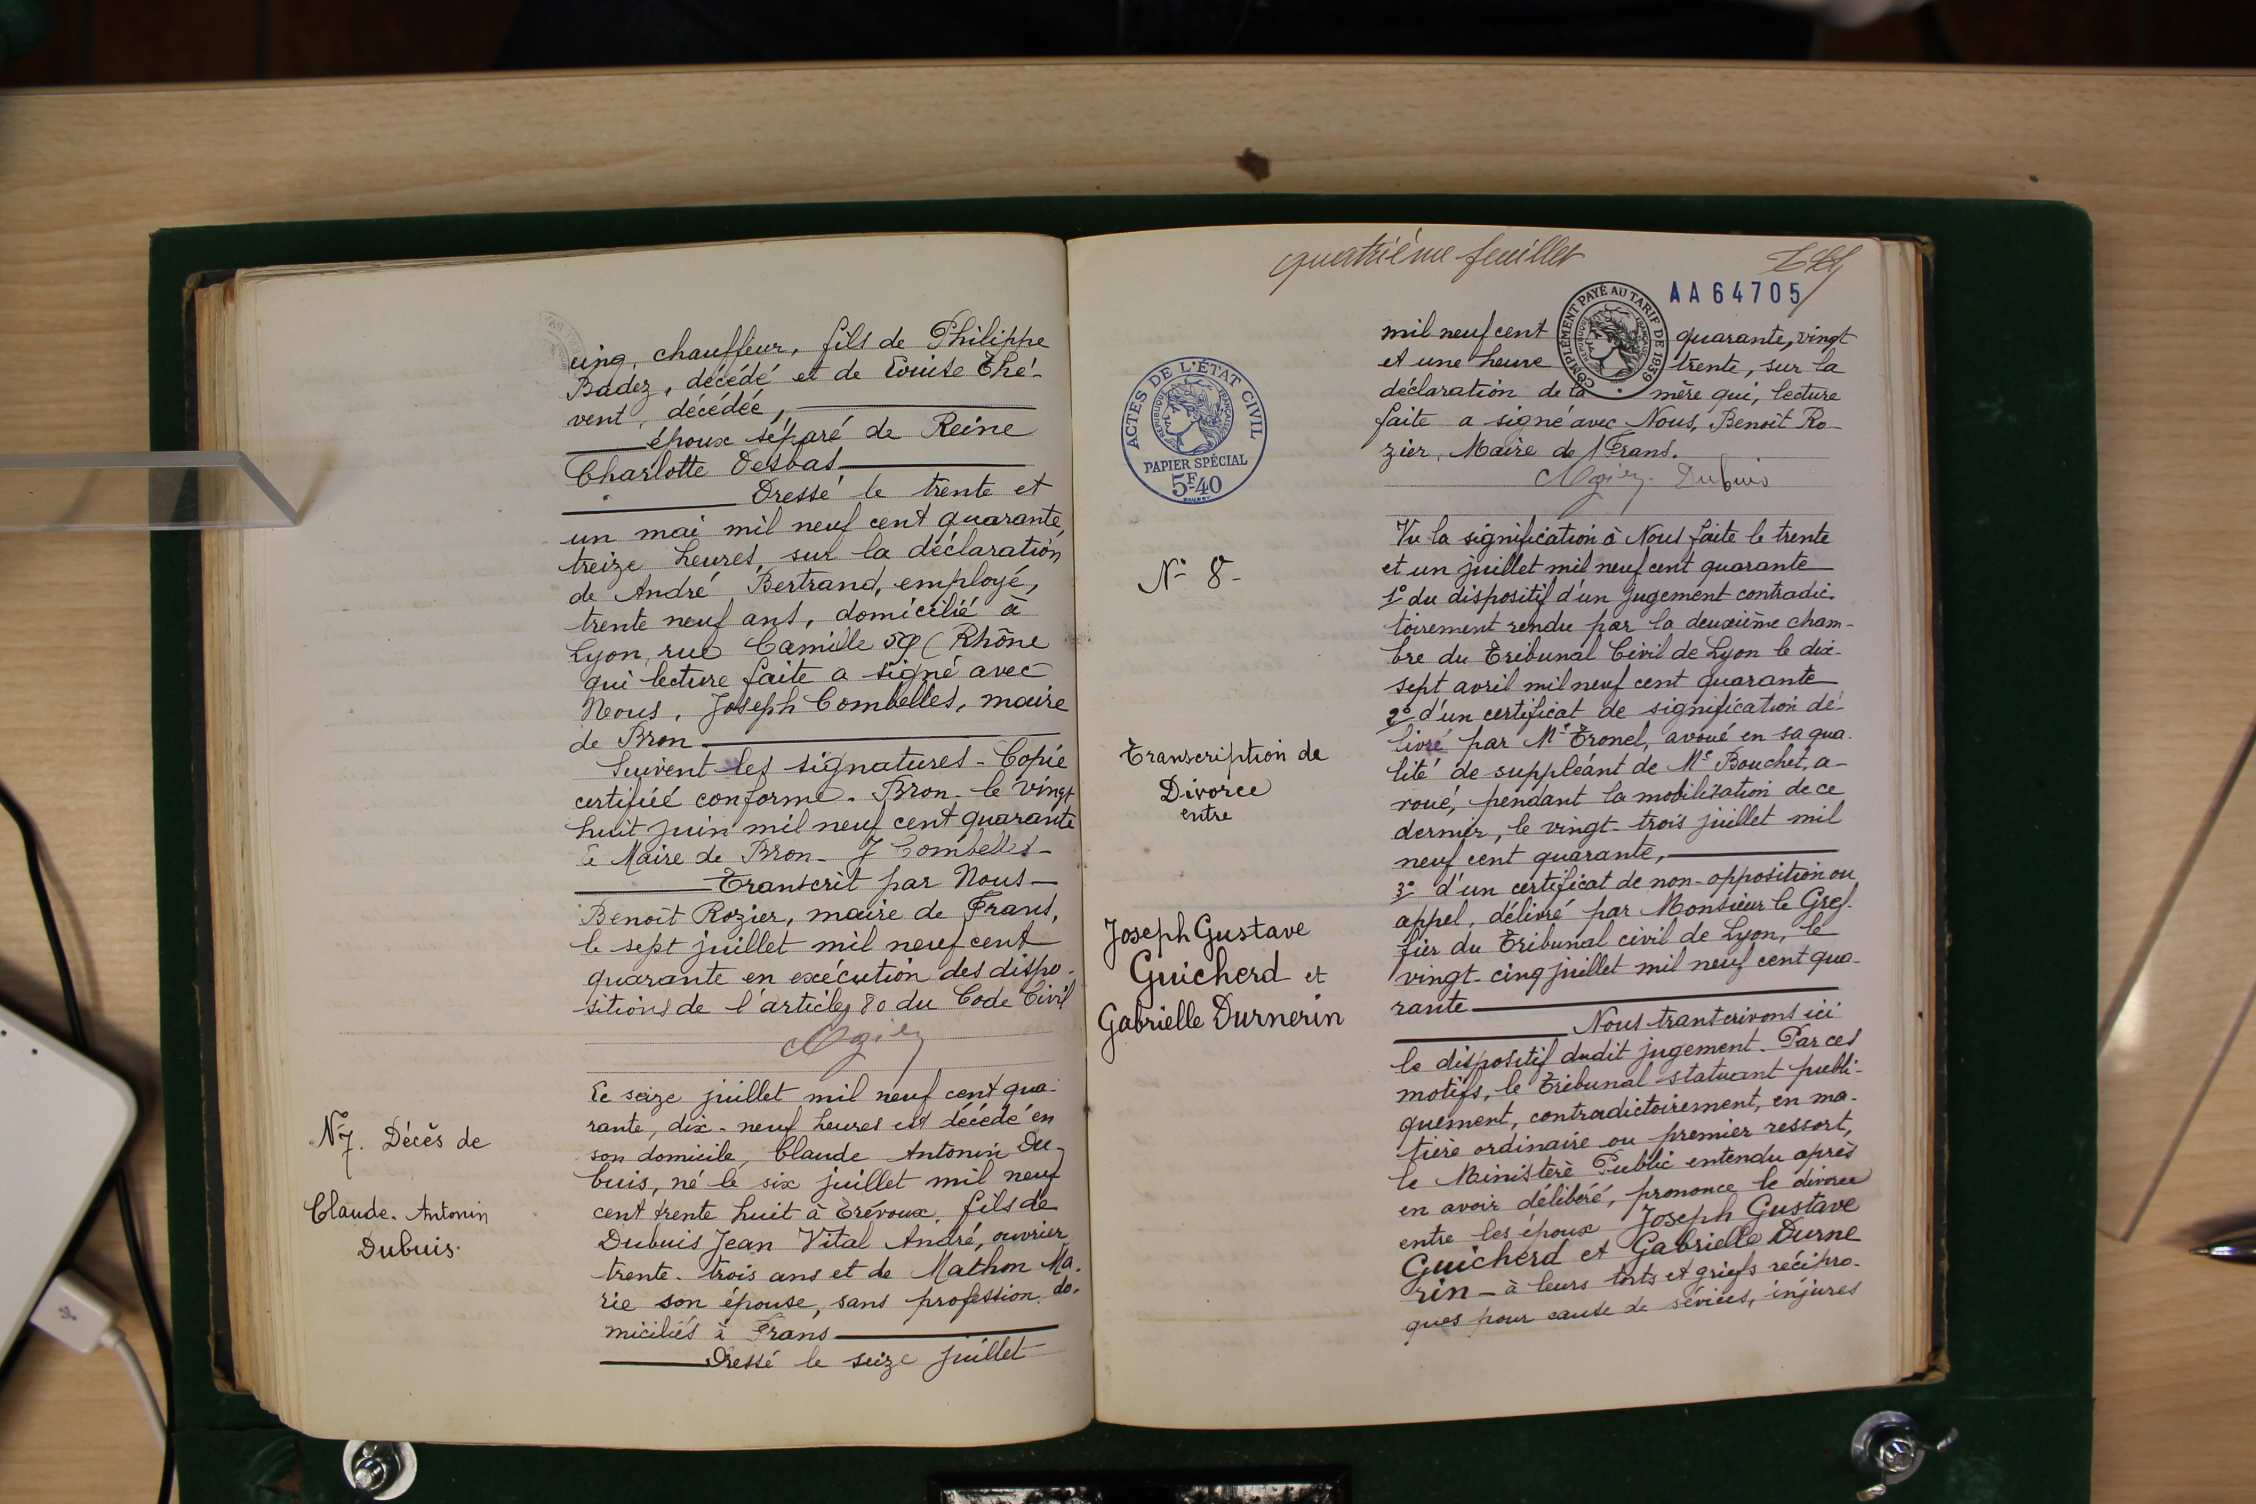 cinq, chauffeur, fils de Philippe
Badez, décédé et de Louise Thé-
vent, décédée,
époux séparé de Reine
Charlotte Desbas
Dressé le trente et
un mai mil neuf cent quarante,
treize heures, sur la déclaration
de André Bertrand, employé,
trente neuf ans, domicilié à
Lyon, rue Camille 59 (Rhône
qui lecture faite a signé avec
Nous, Joseph Combelles, maire
de Bron
Suivent les signatures - Copie
certifiée conforme. Bron - le vingt
huit juin mil neuf cent quarante
Le Maire de Bron - J Combelles -
Transcrit par Nous
Benoît Rozier, maire de Frans,
le sept juillet mil neuf cent
quarante en exécution des dispo-
sitions de l'article 80 du Code Civil
N° 7. Décès de
Claude. Antonin
Dubuis.
Le seize juillet mil neuf cent qua-
rante, dix-neuf heures est décédé en
son domicile, Claude Antonin Du-
buis, né le six juillet mil neuf
cent trente huit à Trévoux, fils de
Dubuis Jean Vital André, ouvrier
trente-trois ans et de Mathon Ma-
rie son épouse, sans profession, do-
miciliés à Frans
Dressé le seize juillet
quatrième feuillet
AA64705
COMPLÉMENT PAYÉ AU TARIF DE 1939
RÉPUBLIQUE FRANÇAISE
mil neuf cent quarante, vingt
et une heure trente, sur la
déclaration de la mère qui, lecture
faite a signé avec Nous, Benoît Ro-
zier, Maire de Frans.
Dubuis
ACTES DE L'ÉTAT CIVIL
RÉPUBLIQUE FRANÇAISE
PAPIER SPÉCIAL
5F40
N° 8-
Transcription de
Divorce
entre
Joseph Gustave
Guicherd et
Gabrielle Durnerin
Vu la signification à Nous faite le trente
et un juillet mil neuf cent quarante
1° du dispositif d'un jugement contradic-
toirement rendu par la deuxième cham-
bre du Tribunal Civil de Lyon le dix-
sept avril mil neuf cent quarante
2° d'un certificat de signification dé-
livré par Me Tronel, avoué en sa qua-
lité de suppléant de Me Bouchet, a-
voué, pendant la mobilisation de ce
dernier, le vingt-trois juillet mil
neuf cent quarante,
3° d'un certificat de non-opposition ou
appel, délivré par Monsieur le Gref-
fier du Tribunal civil de Lyon, le
vingt-cinq juillet mil neuf cent qua-
rante
Nous transcrivons ici
le dispositif dudit jugement. Par ces
motifs, le Tribunal statuant publi-
quement, contradictoirement, en ma-
tière ordinaire ou premier ressort,
le Ministère Public entendu après
en avoir délibéré, prononce le divorce
entre les époux Joseph Gustave
Guicherd et Gabrielle Durne
rin - à leurs torts et griefs récipro-
ques pour cause de sévices, injures